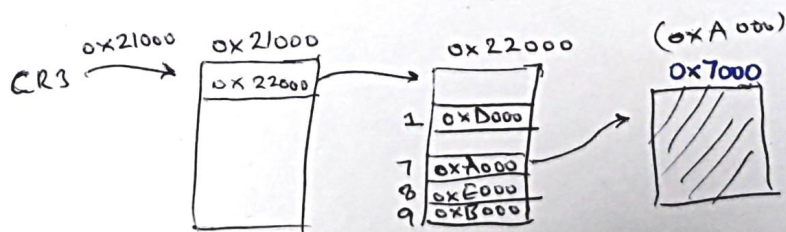 0x21000
CR3
0x21000
0x22000
0x22000
1 0xD000
7 0xA000
8 0xE000
9 0xB000
(0xA000)
0x7000